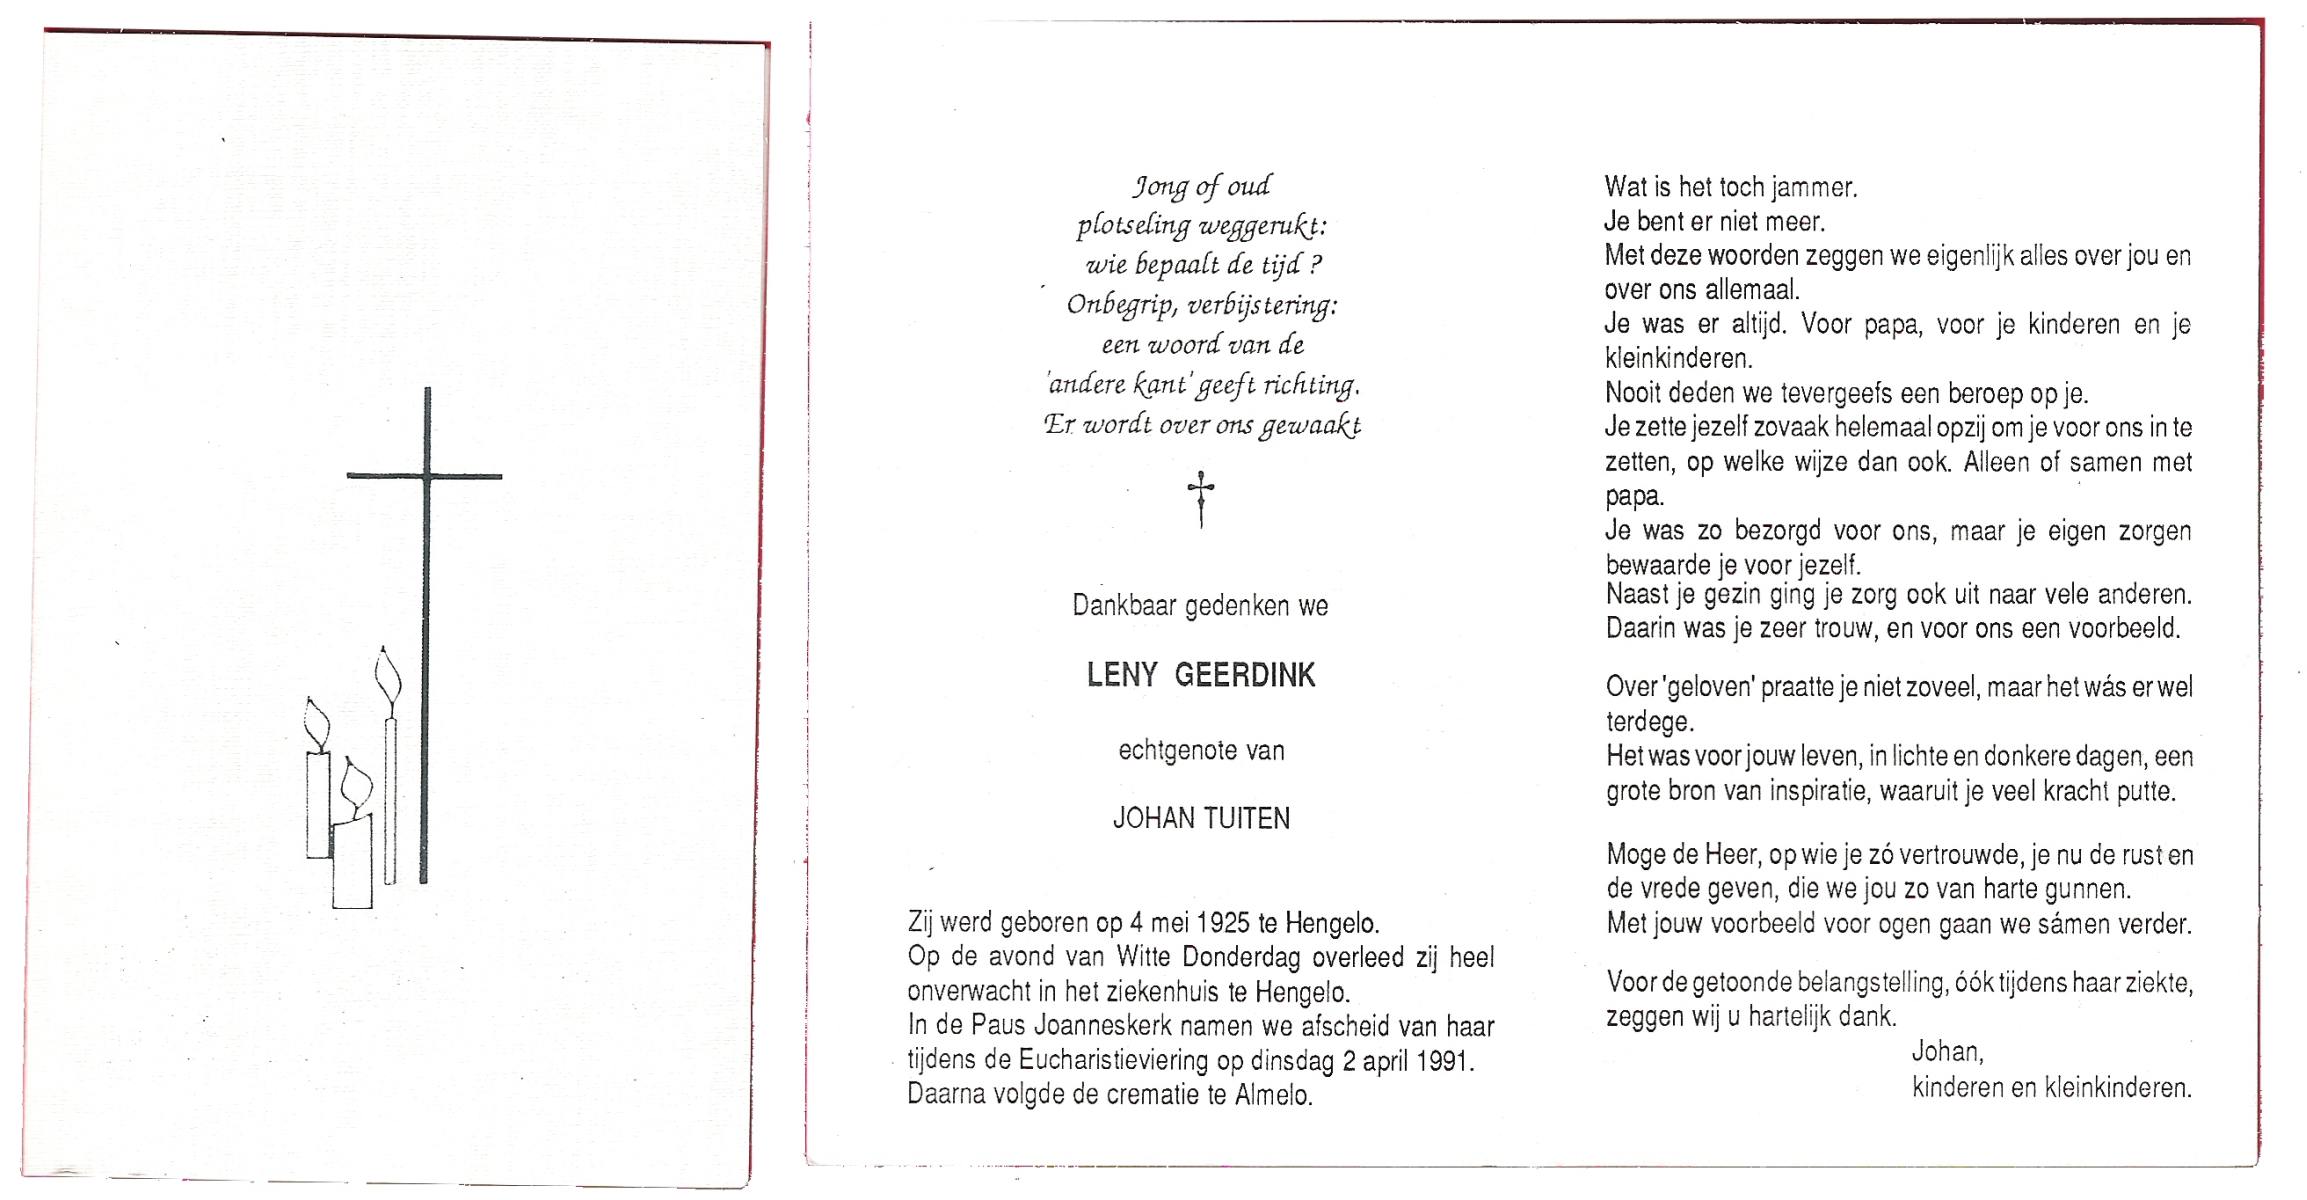 Jong of oud
plotseling weggerukt:
wie bepaalt de tijd ?
Onbegrip, verbijstering:
een woord van de
'andere kant' geeft richting.
Er wordt over ons gewaakt
Dankbaar gedenken we
LENY GEERDINK
echtgenote van
JOHAN TUITEN
Zij werd geboren op 4 mei 1925 te Hengelo.
Op de avond van Witte Donderdag overleed zij heel
onverwacht in het ziekenhuis te Hengelo.
In de Paus Joanneskerk namen we afscheid van haar
tijdens de Eucharistieviering op dinsdag 2 april 1991.
Daarna volgde de crematie te Almelo.
Wat is het toch jammer.
Je bent er niet meer.
Met deze woorden zeggen we eigenlijk alles over jou en
over ons allemaal.
Je was er altijd. Voor papa, voor je kinderen en je
kleinkinderen.
Nooit deden we tevergeefs een beroep op je.
Je zette jezelf zovaak helemaal opzij om je voor ons in te
zetten, op welke wijze dan ook. Alleen of samen met
papa.
Je was zo bezorgd voor ons, maar je eigen zorgen
bewaarde je voor jezelf.
Naast je gezin ging je zorg ook uit naar vele anderen.
Daarin was je zeer trouw, en voor ons een voorbeeld.
Over 'geloven' praatte je niet zoveel, maar het wás er wel
terdege.
Het was voor jouw leven, in lichte en donkere dagen, een
grote bron van inspiratie, waaruit je veel kracht putte.
Moge de Heer, op wie je zó vertrouwde, je nu de rust en
de vrede geven, die we jou zo van harte gunnen.
Met jouw voorbeeld voor ogen gaan we sámen verder.
Voor de getoonde belangstelling, óók tijdens haar ziekte,
zeggen wij u hartelijk dank.
Johan,
kinderen en kleinkinderen.